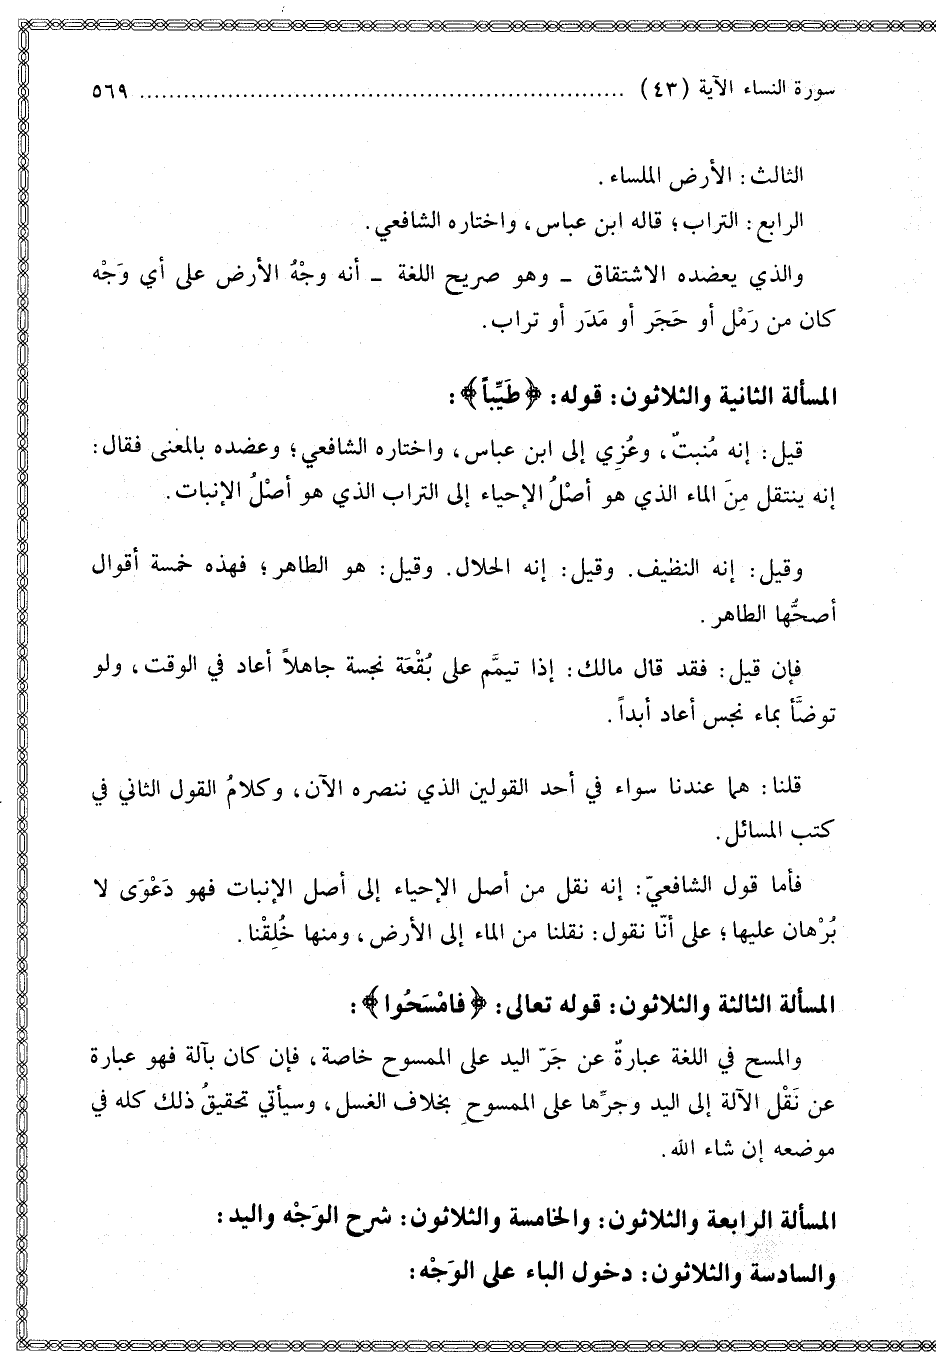 سورة النساء الآية (٤٣) ................................................................ ٥٦٩
الثالث: الأرض الملساء.
الرابع: التراب؛ قاله ابن عباس، واختاره الشافعي.
والذي يعضده الاشتقاق ـ وهو صريح اللغة ـ أنه وجْهُ الأرض على أي وَجْه
كان من رَمْل أو حَجَر أو مَدَر أو تراب.
المسألة الثانية والثلاثون: قوله: ﴿طَيِّباً﴾:
قيل: إنه مُنبتٌ، وعُزِي إلى ابن عباس، واختاره الشافعي؛ وعضده بالمعنى فقال:
إنه ينتقل مِنَ الماء الذي هو أصْلُ الإحياء إلى التراب الذي هو أصْلُ الإنبات.
وقيل: إنه النظيف. وقيل: إنه الحلال. وقيل: هو الطاهر؛ فهذه خمسة أقوال
أصحُّها الطاهر.
فإن قيل: فقد قال مالك: إذا تيمَّم على بُقْعَة نجسة جاهلاً أعاد في الوقت، ولو
توضَّأ بماء نجس أعاد أبداً.
قلنا: هما عندنا سواء في أحد القولين الذي ننصره الآن، وكلامُ القول الثاني في
كتب المسائل.
فأما قول الشافعيّ: إنه نقل من أصل الإحياء إلى أصل الإنبات فهو دَعْوَى لا
بُرْهان عليها؛ على أنّا نقول: نقلنا من الماء إلى الأرض، ومنها خُلِقْنا.
المسألة الثالثة والثلاثون: قوله تعالى: ﴿فامْسَحُوا﴾:
والمسح في اللغة عبارةٌ عن جَرّ اليد على الممسوح خاصة، فإن كان بآلة فهو عبارة
عن نَقْل الآلة إلى اليد وجرِّها على الممسوحِ بخلاف الغسل، وسيأتي تحقيقُ ذلك كله في
موضعه إن شاء الله.
المسألة الرابعة والثلاثون: والخامسة والثلاثون: شرح الوَجْه واليد:
والسادسة والثلاثون: دخول الباء على الوَجْه: